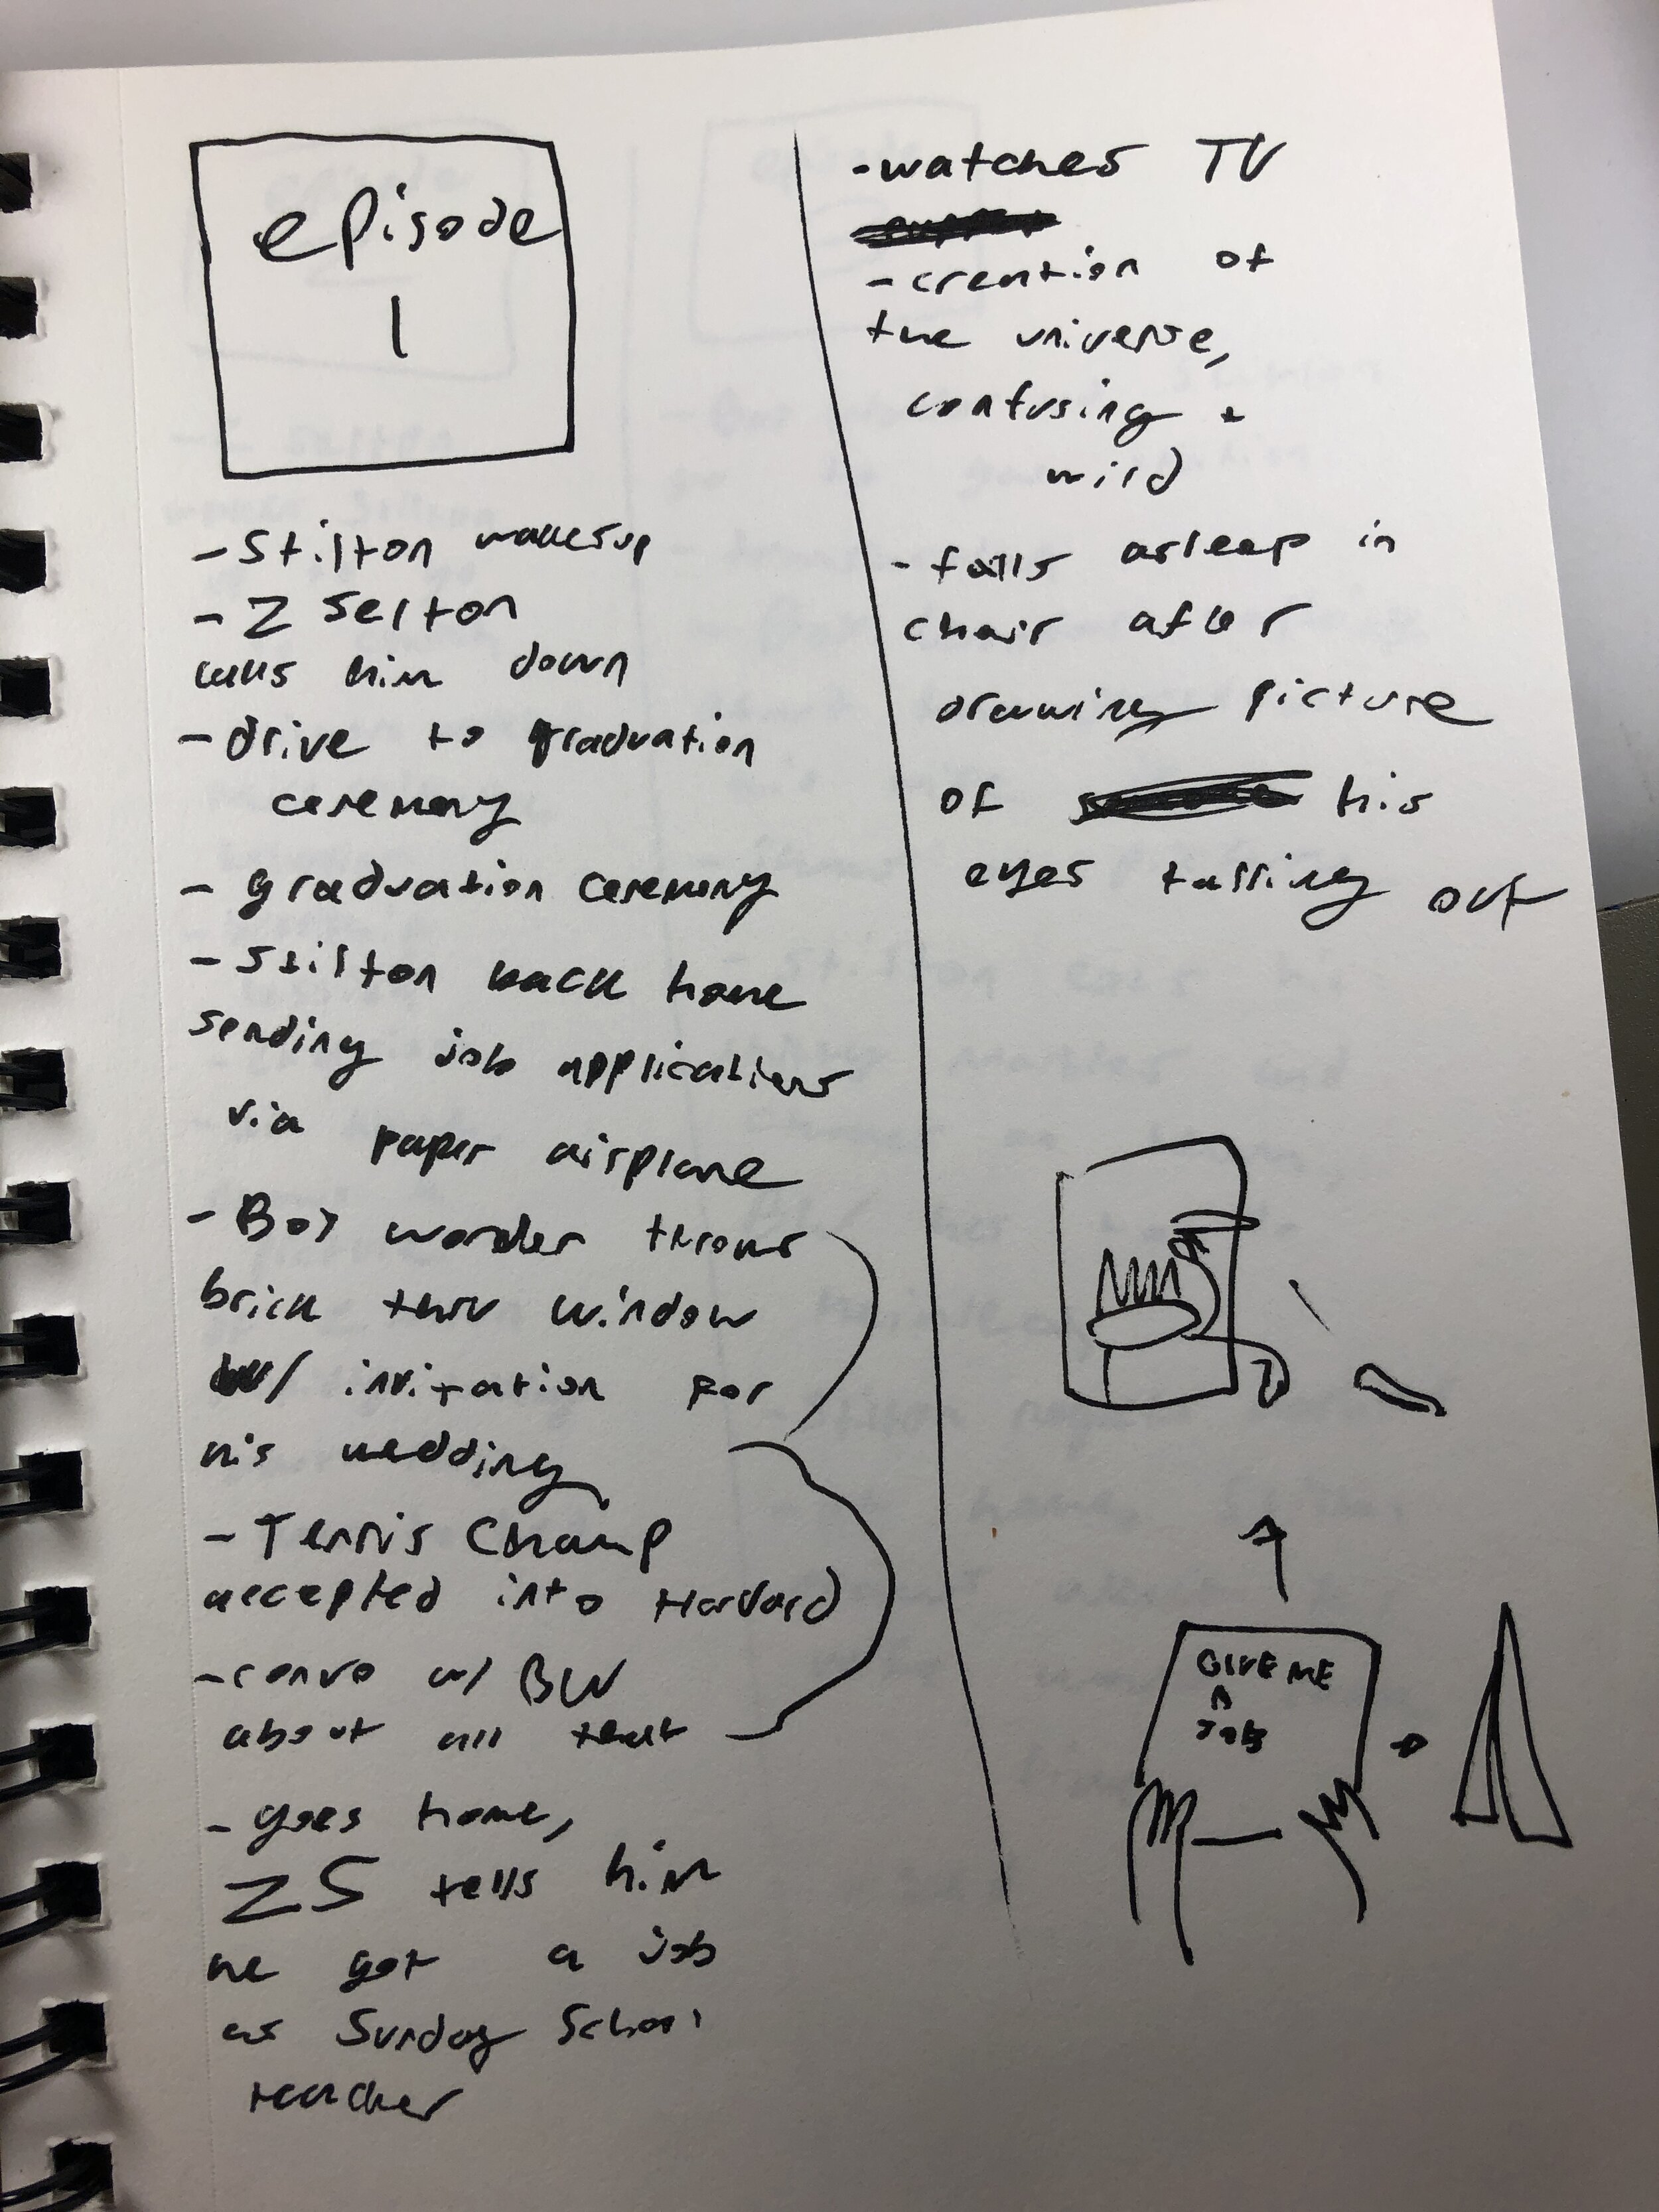 episode
1
- Stilton wakes up
- Z Selton
calls him down
- drive to graduation
ceremony
- graduation ceremony
- Stilton back home
sending job applications
via paper airplane
- Boy wonder throws
brick thru window
w/ invitation for
his wedding
- Tennis Champ
accepted into Harvard
- convo w/ BW
about all that
- goes home,
ZS tells him
he got a job
as Sunday School
teacher
- watches TV
- creation of
the universe,
confusing +
wild
- falls asleep in
chair after
drawing picture
of his
eyes falling out
GIVE ME
A
JOB